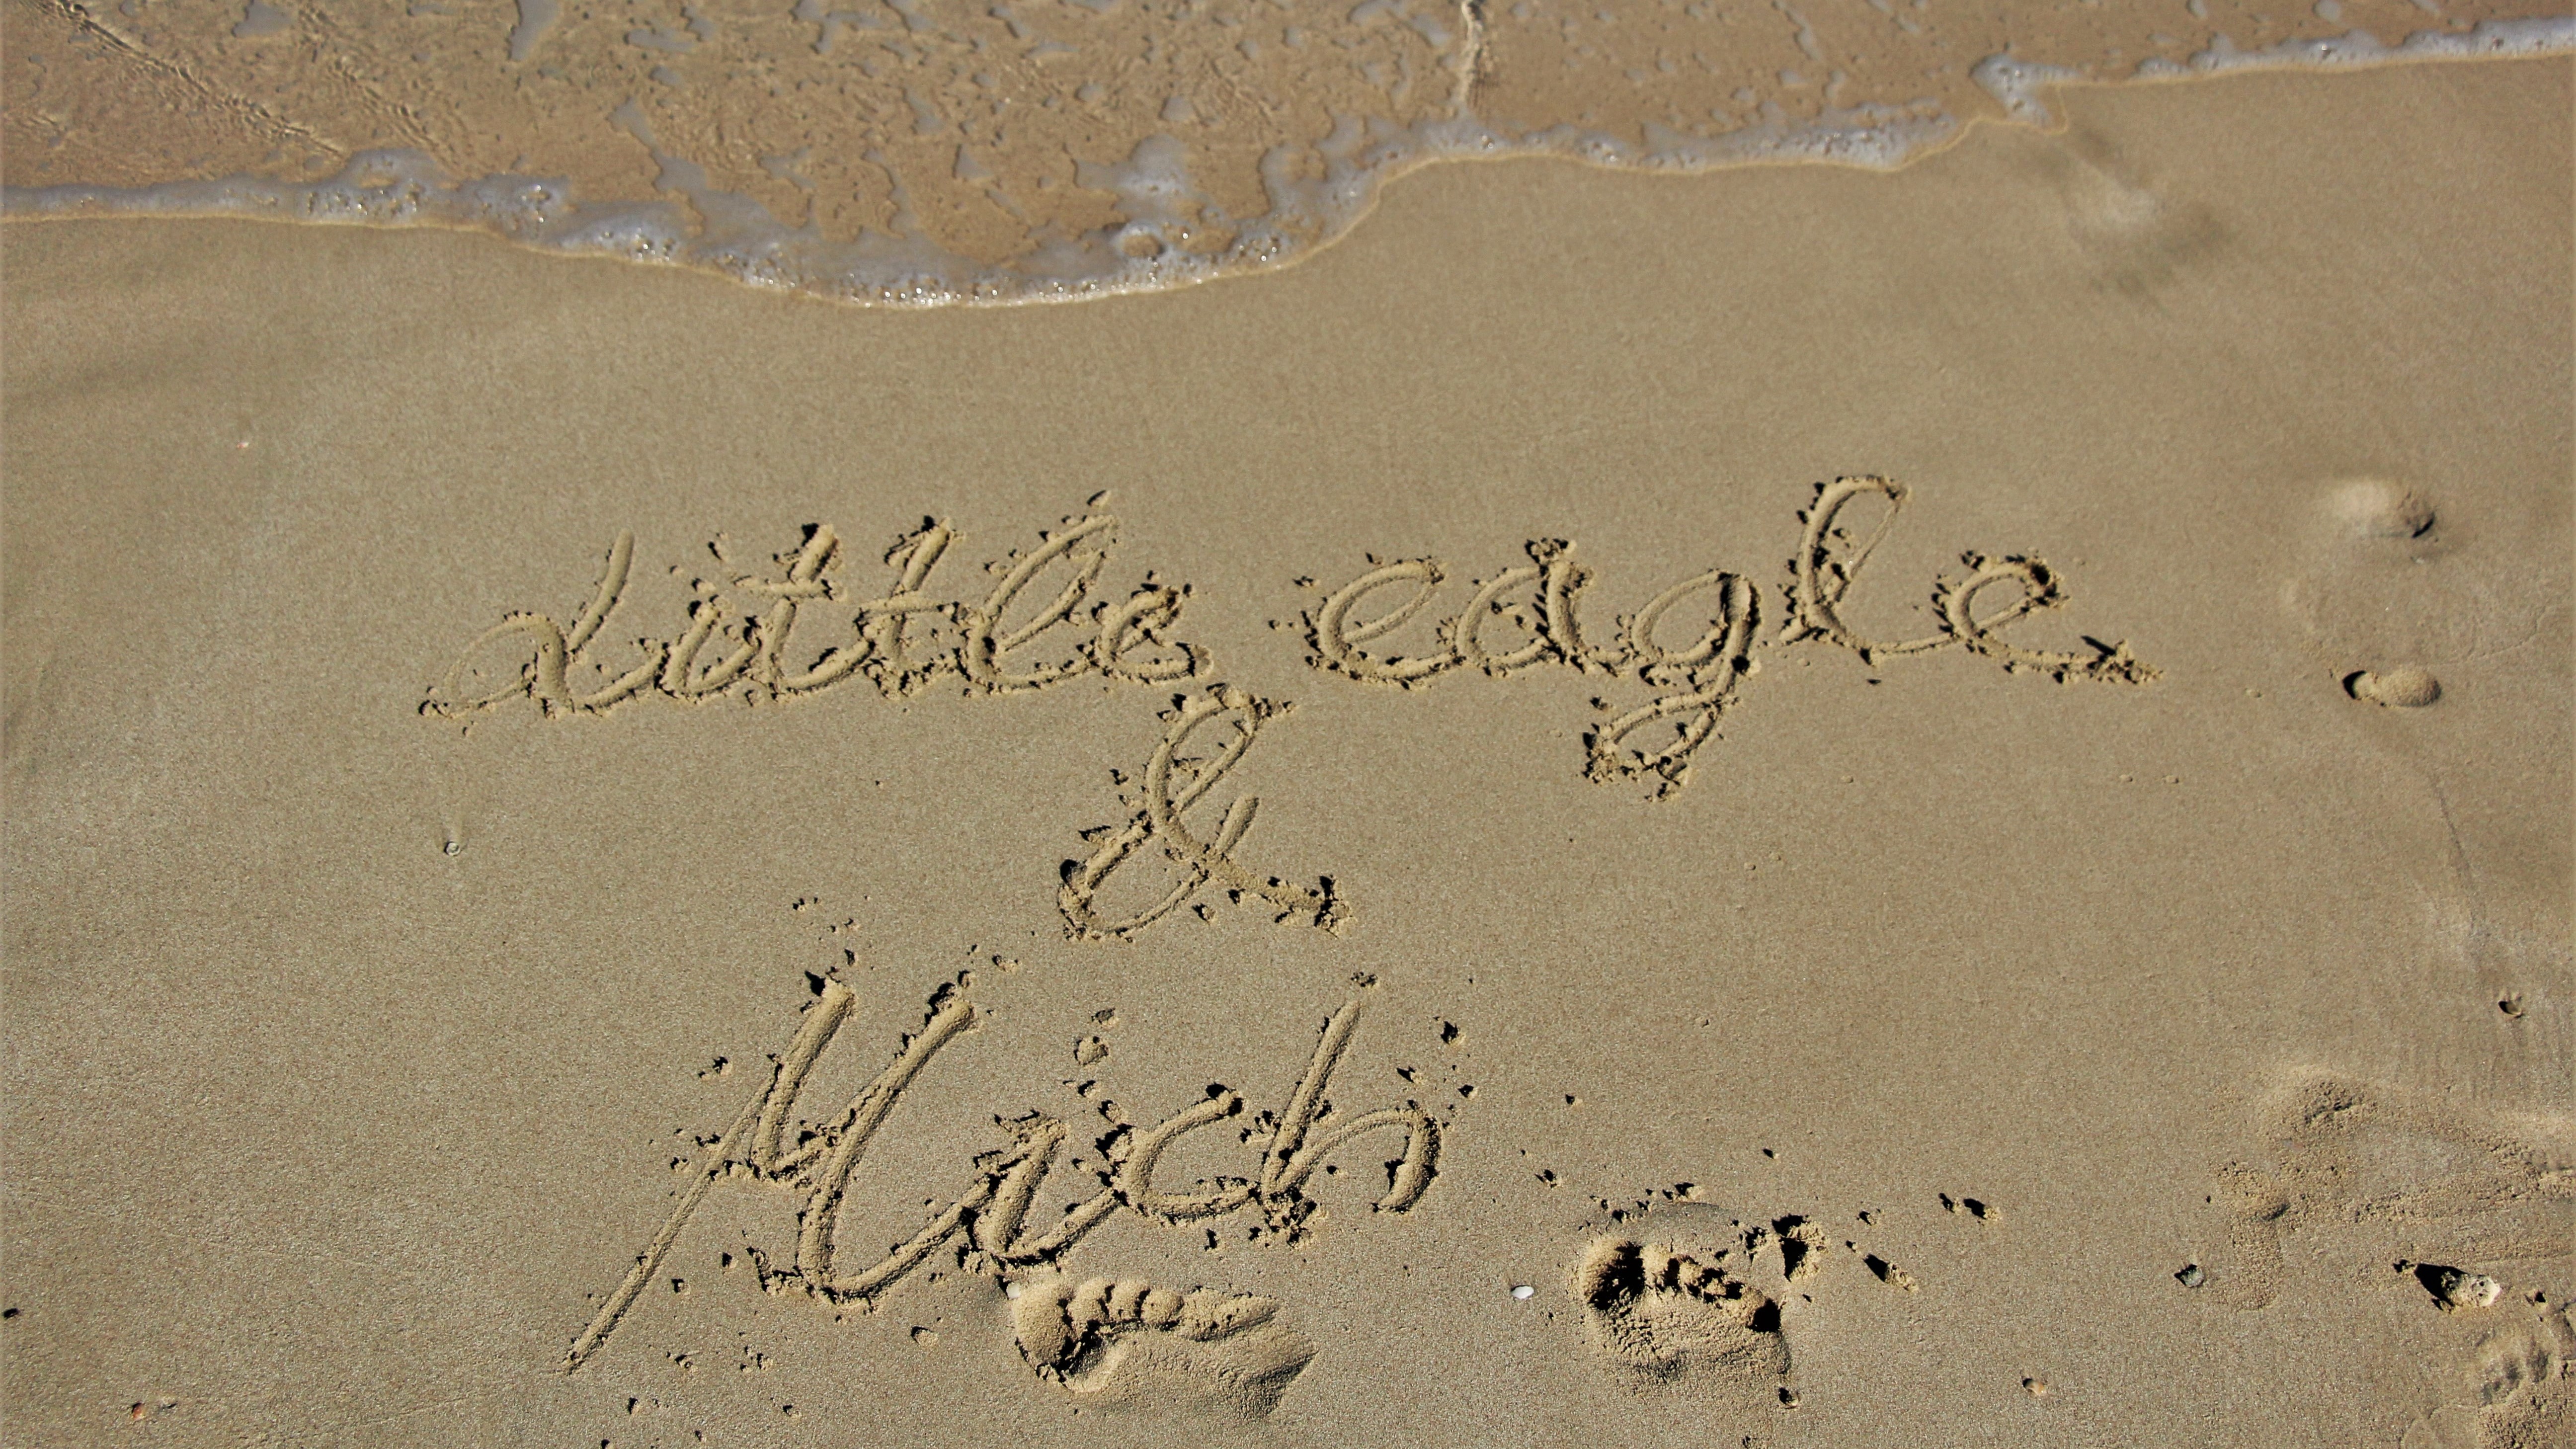 Little eagle
&
Mich